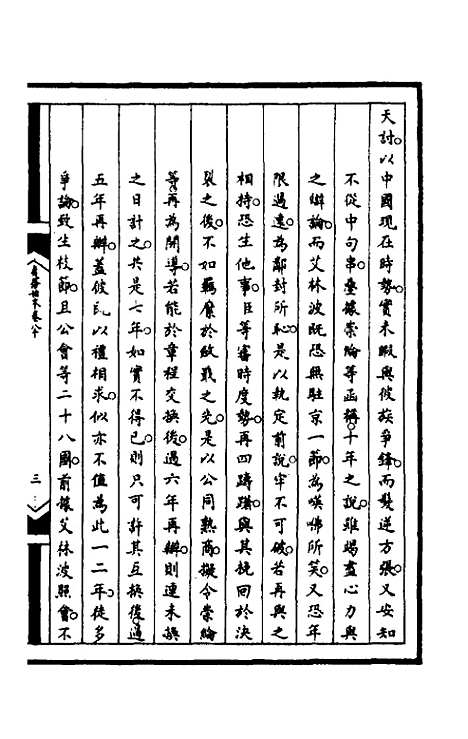 天討以中國現在時勢實未暇與彼族爭鋒而髮逆方張又安知
不從中勾串疊據崇綸等函稱十年之說雖竭盡心力與
之辯論而艾林波既恐無駐京一節為嘆咈所笑又恐年
限過遠為鄰封所恥是以執定前說牢不可破若再與之
相持恐生他事臣等審時度勢再四躊躇與其挽回於決
裂之後不如羈縻於敛戢之先是以公同熟商擬令崇綸
等再為開導若能於章程交換後過六年再辦則連未換
之日計之共是七年如實不得已則只可許其互換後過
五年再辦蓋彼既以禮相求似亦不值為此一二年徒多
爭論致生枝節且公會等二十八國前據艾林波照會不
三